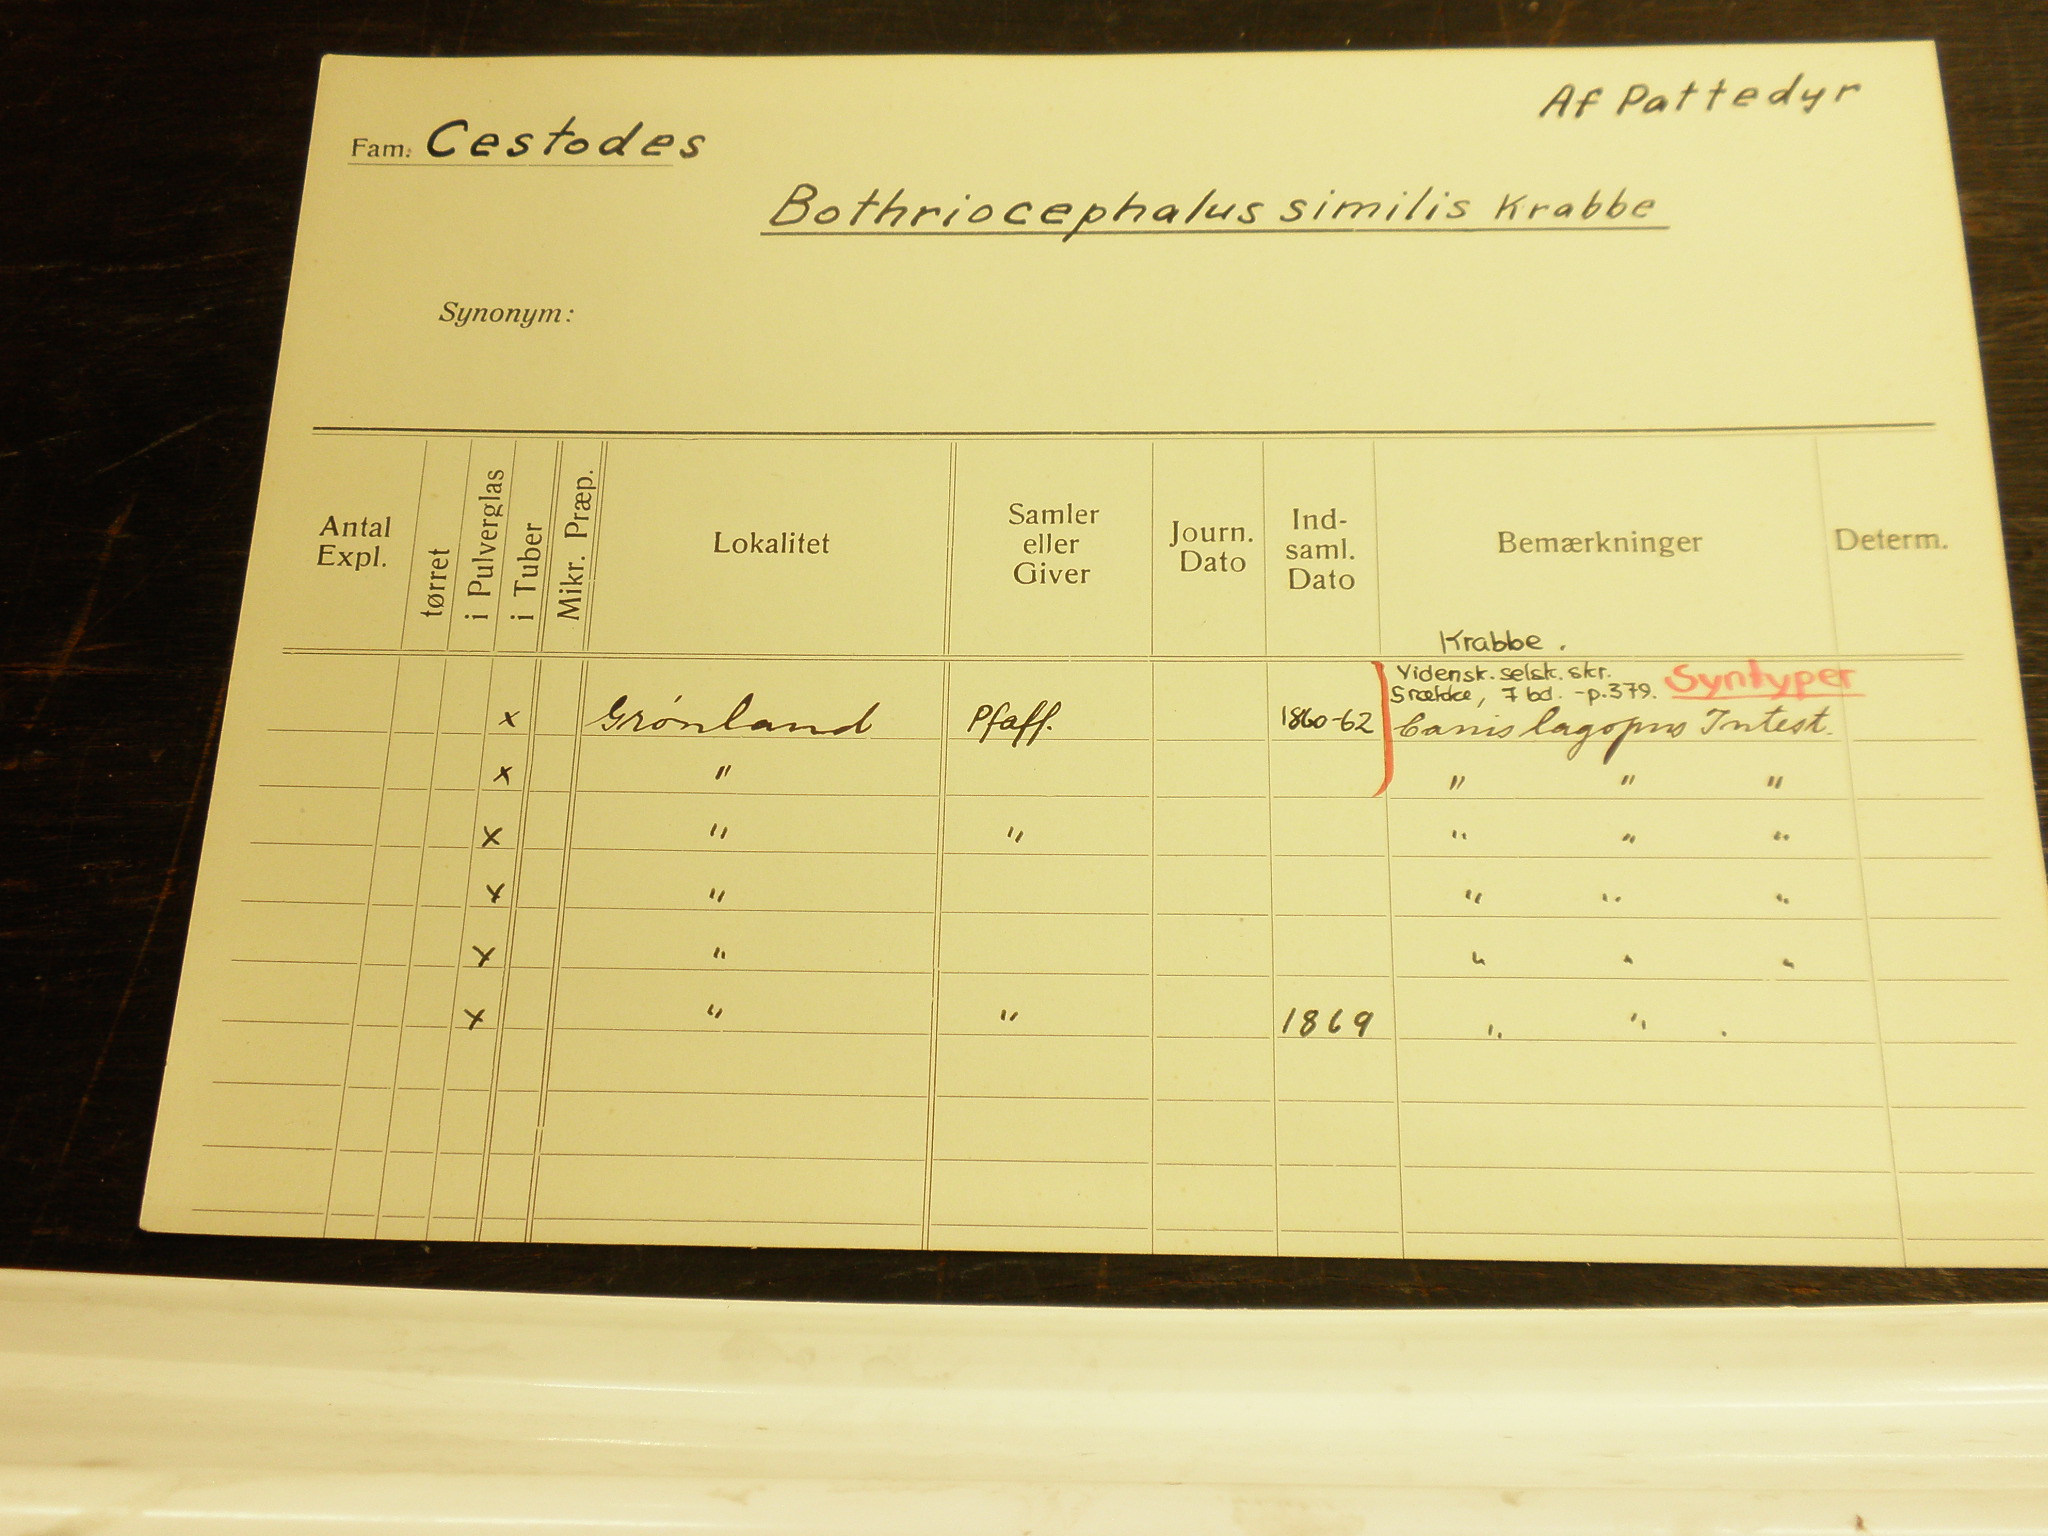 Af Pattedyr
Fam: Cestodes
Bothriocephalus similis Krabbe
Synonym:
Antal Expl.
tørret
i Pulverglas
i Tuber
Mikr. Præp.
Lokalitet
Samler eller Giver
Journ. Dato
Ind-saml. Dato
Bemærkninger
Determ.
Krabbe.
Vidensk. selsk. skr. Syntyper
5 række, 7 bd. - p. 379.
x Grönland Pfaff. 1860-62 Canis lagopus Intest.
x " " " "
x " " " " "
x " " " "
x " " " "
x " " 1869 " " .